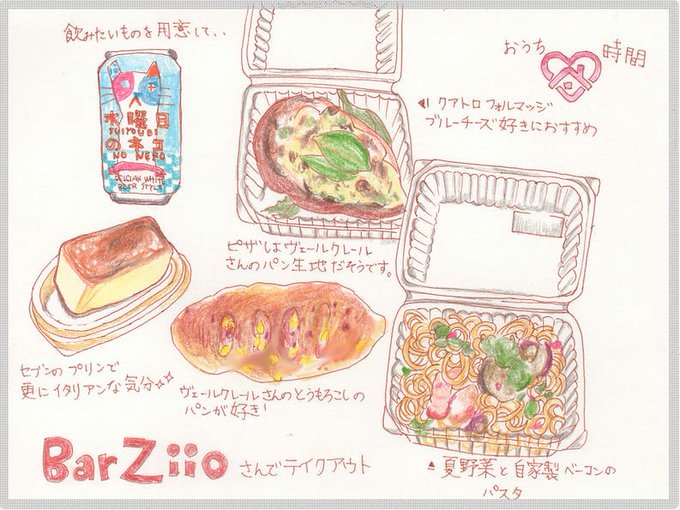 飲みたいものを用意して、、
おうち
時間
水曜日
SUIYOUBI
のネコ
NO NEKO
BELGIAN WHITE
BEER STYLE
クアトロフォルマッジ
ブルーチーズ好きにおすすめ
ピザしよヴェールクレール
さんのパン生地だそうです。
セブンのプリンで
更にイタリアンな気分
ヴェールクレールさんのとうもろこしの
パンが好き!
BarZiio さんでテイクアウト
夏野菜と自家製ベーコンの
パスタ